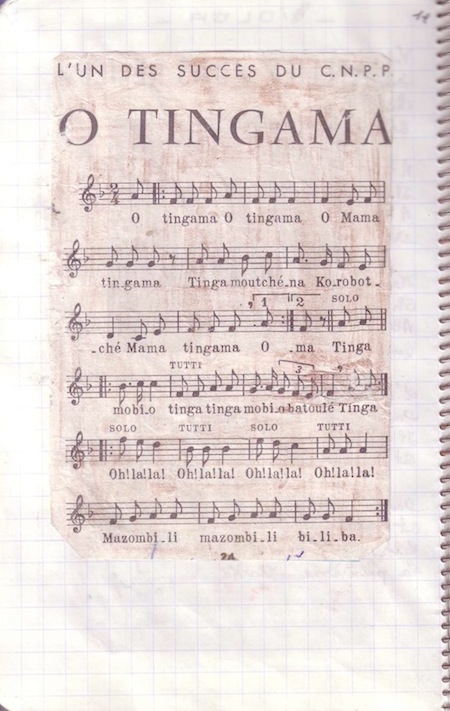 11
L'UN DES SUCCÈS DU C.N.P.P.
O TINGAMA
O tingama O tingama O Mama
tin.gama Tinga moutché.na Ko.robot.
1 2 SOLO
.ché Mama tingama O .ma Tinga
TUTTI 3
mobi.o tinga tinga mobi.o batoulé Tinga
SOLO TUTTI SOLO TUTTI
Oh!la!la! Oh!la!la! Oh!la!la! Oh!la!la!
Mazombi.li mazombi.li bi.li.ba.